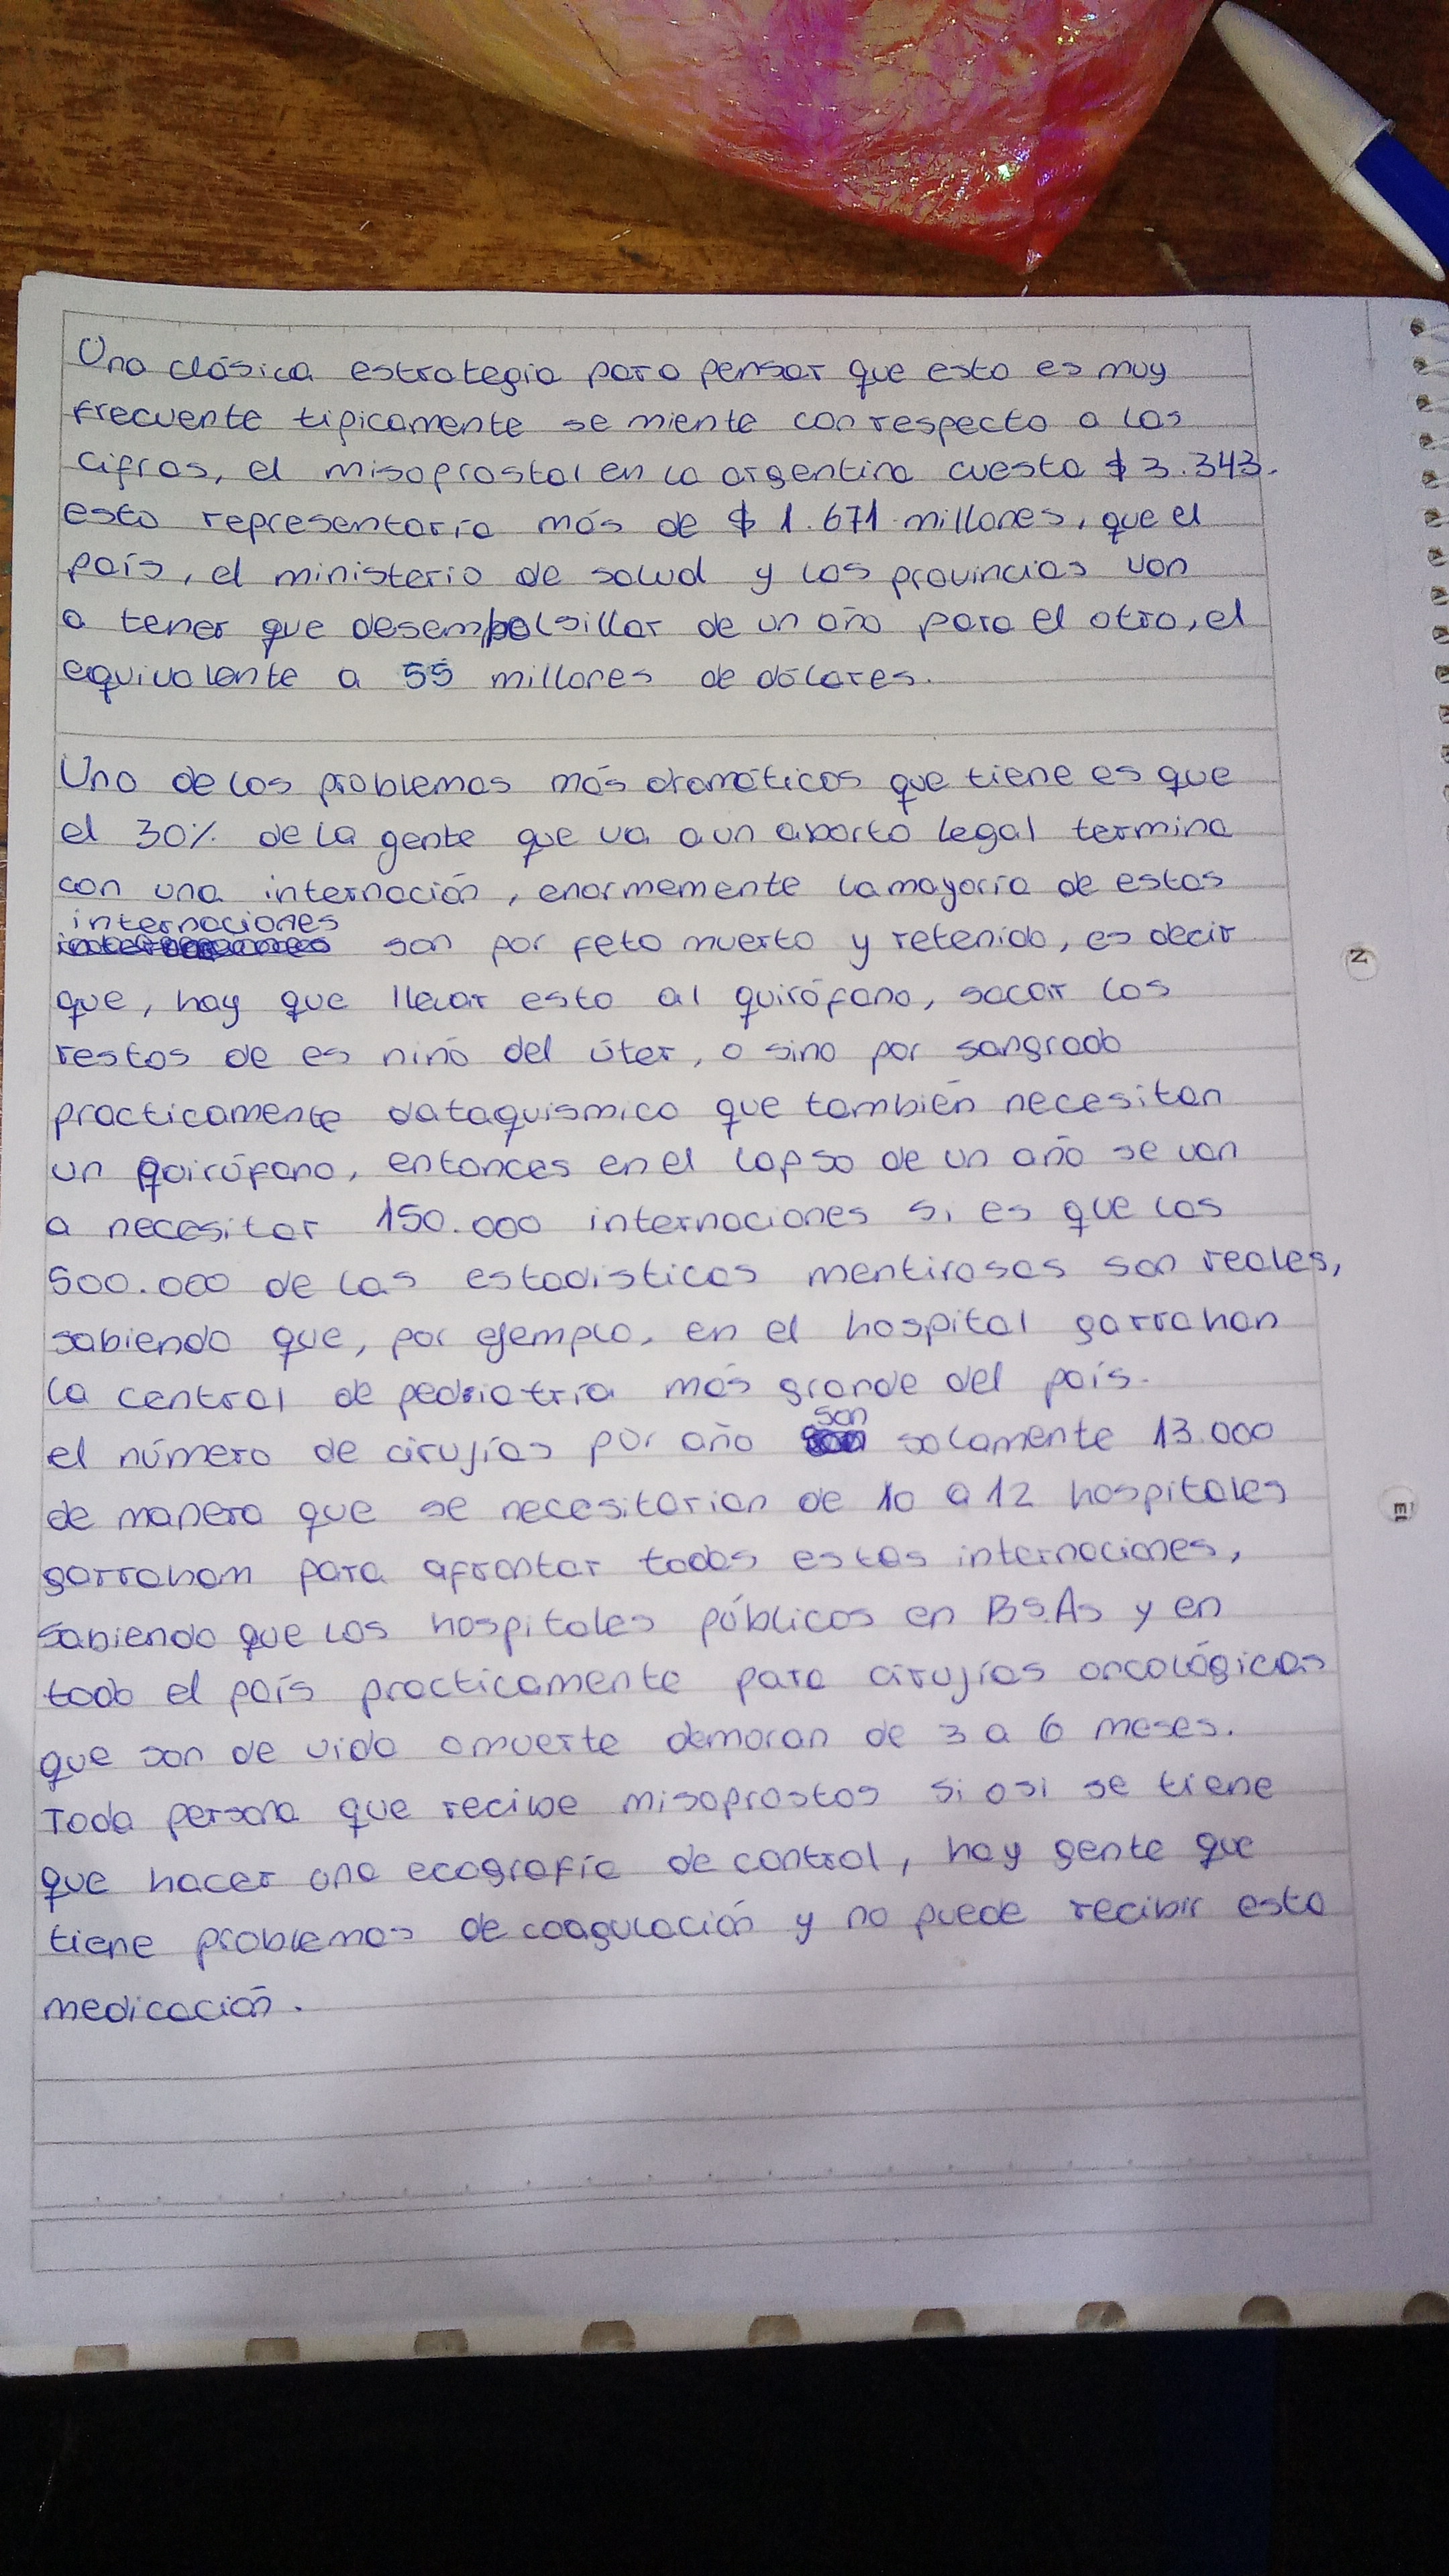 Una clásica estrategia para pensar que esto es muy
frecuente tipicamente se miente con respecto a las
cifras, el misoprostol en la argentina cuesta $ 3.343.
esto representaría más de $ 1.671 millones, que el
país, el ministerio de salud y las provincias van
a tener que desembolsillar de un año para el otro, el
equivalente a 55 millones de dólares.
Uno de los problemas más dramáticos que tiene es que
el 30% de la gente que va a un aborto legal termina
con una internación, enormemente la mayoría de estas
internaciones
son por feto muerto y retenido, es decir
que, hay que llevar esto al quirófano, sacar los
restos de es niño del úter, o sino por sangrado
practicamente dataquismico que también necesitan
un quirófano, entonces en el lapso de un año se van
a necesitar 150.000 internaciones si es que las
500.000 de las estadisticas mentirosas son reales,
sabiendo que, por ejemplo, en el hospital garrahan
la central de pediatría más grande del país.
el número de cirujías por año son solamente 13.000
de manera que se necesitarian de 10 a 12 hospitales
garraham para afrontar todas estas internaciones,
sabiendo que los hospitales públicos en BS.As y en
todo el país practicamente para cirujías oncológicas
que son de vida o muerte demoran de 3 a 6 meses.
Toda persona que recibe misoprostos si o si se tiene
que hacer una ecografía de control, hay gente que
tiene problemas de coagulación y no puede recibir esta
medicación.
N
El